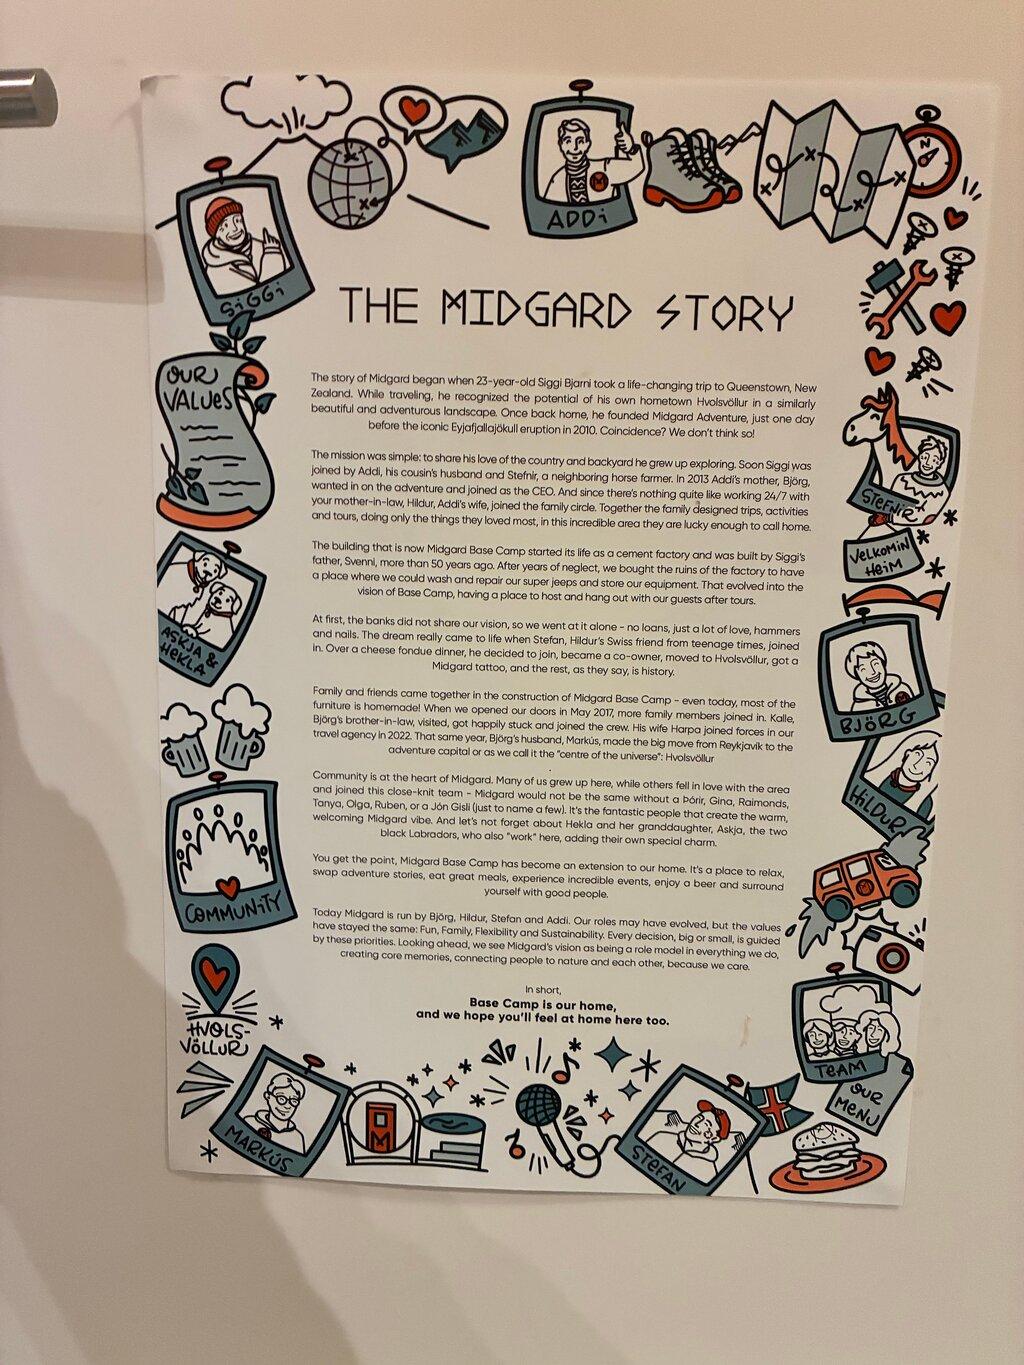 SiGGi
ADDi
N
THE MIDGARD STORY
OUR
VALUES
The story of Midgard began when 23-year-old Siggi Bjarni took a life-changing trip to Queenstown, New
Zealand. While traveling, he recognized the potential of his own hometown Hvolsvöllur in a similarly
beautiful and adventurous landscape. Once back home, he founded Midgard Adventure, just one day
before the iconic Eyjafjallajökull eruption in 2010. Coincidence? We don't think so!
The mission was simple: to share his love of the country and backyard he grew up exploring. Soon Siggi was
joined by Addi, his cousin's husband and Stefnir, a neighboring horse farmer. In 2013 Addi's mother, Björg,
wanted in on the adventure and joined as the CEO. And since there's nothing quite like working 24/7 with
your mother-in-law, Hildur, Addi's wife, joined the family circle. Together the family designed trips, activities
and tours, doing only the things they loved most, in this incredible area they are lucky enough to call home.
STEFNiR
VELKOMiN
HEiM
The building that is now Midgard Base Camp started its life as a cement factory and was built by Siggi's
father, Svenni, more than 50 years ago. After years of neglect, we bought the ruins of the factory to have
a place where we could wash and repair our super jeeps and store our equipment. That evolved into the
vision of Base Camp, having a place to host and hang out with our guests after tours.
ASKJA &
HEKLA
At first, the banks did not share our vision, so we went at it alone - no loans, just a lot of love, hammers
and nails. The dream really came to life when Stefan, Hildur's Swiss friend from teenage times, joined
in. Over a cheese fondue dinner, he decided to join, became a co-owner, moved to Hvolsvöllur, got a
Midgard tattoo, and the rest, as they say, is history.
BJÖRG
Family and friends came together in the construction of Midgard Base Camp – even today, most of the
furniture is homemade! When we opened our doors in May 2017, more family members joined in. Kalle,
Björg's brother-in-law, visited, got happily stuck and joined the crew. His wife Harpa joined forces in our
travel agency in 2022. That same year, Björg's husband, Markús, made the big move from Reykjavik to the
adventure capital or as we call it the "centre of the universe": Hvolsvöllur
HiLDUR
Community is at the heart of Midgard. Many of us grew up here, while others fell in love with the area
and joined this close-knit team - Midgard would not be the same without a Þórir, Gina, Raimonds,
Tanya, Olga, Ruben, or a Jón Gísli (just to name a few). It's the fantastic people that create the warm,
welcoming Midgard vibe. And let's not forget about Hekla and her granddaughter, Askja, the two
black Labradors, who also "work" here, adding their own special charm.
COMMUNiTY
You get the point, Midgard Base Camp has become an extension to our home. It's a place to relax,
swap adventure stories, eat great meals, experience incredible events, enjoy a beer and surround
yourself with good people.
Today Midgard is run by Björg, Hildur, Stefan and Addi. Our roles may have evolved, but the values
have stayed the same: Fun, Family, Flexibility and Sustainability. Every decision, big or small, is guided
by these priorities. Looking ahead, we see Midgard's vision as being a role model in everything we do,
creating core memories, connecting people to nature and each other, because we care.
In short,
Base Camp is our home,
and we hope you'll feel at home here too.
HVOLS-
VÖLLUR
TEAM
OUR
MENU
MARKÚS
STEFAN